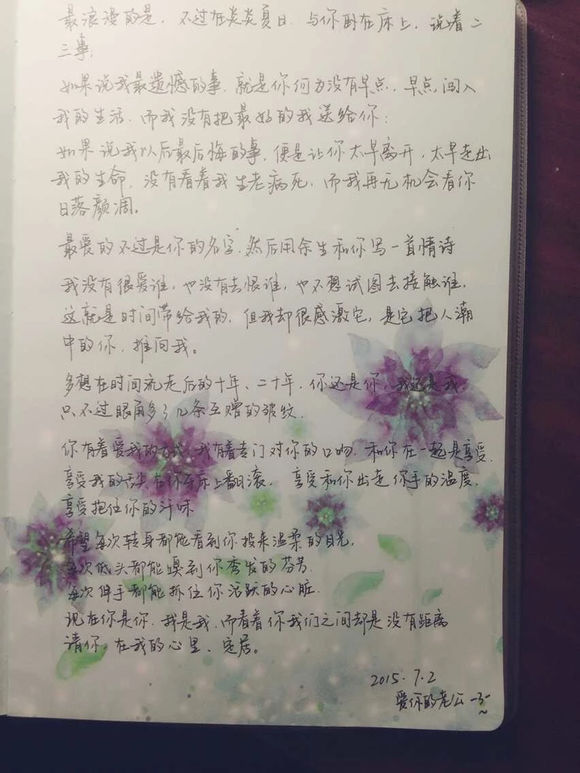 最浪漫的是，不过在炎炎夏日，与你卧在床上，说着二
三事。
如果说我最遗憾的事，就是你何为没有早点，早点闯入
我的生活，而我没有把最好的我送给你；
如果说我以后最后悔的事，便是让你太早离开，太早走出
我的生命，没有看着我生老病死，而我再无机会看你
日落颜凋。
最爱的不过是你的名字，然后用余生和你写一首情诗
我没有很爱谁，也没有去恨谁，也不想试图去接触谁，
这就是时间带给我的，但我却很感激它，是它把人潮
中的你，推向我。
多想在时间流走后的十年、二十年，你还是你，我还是我
只不过眼角多了几条互赠的波纹
你有着爱我的方式，我有着专门对你的口吻，和你在一起是享受，
享受我的 在你 床上翻滚，享受和你出走你手的温度，
享受抱住你的汗味
希望每次转身都能看到你投来温柔的目光，
每次低头都能嗅到你秀发的芬芳
每次伸手都能抓住你活跃的心脏
现在你是你，我是我，而看着你我们之间却是没有距离
请你，在我的心里，定居。
2015.7.2
爱你的老公